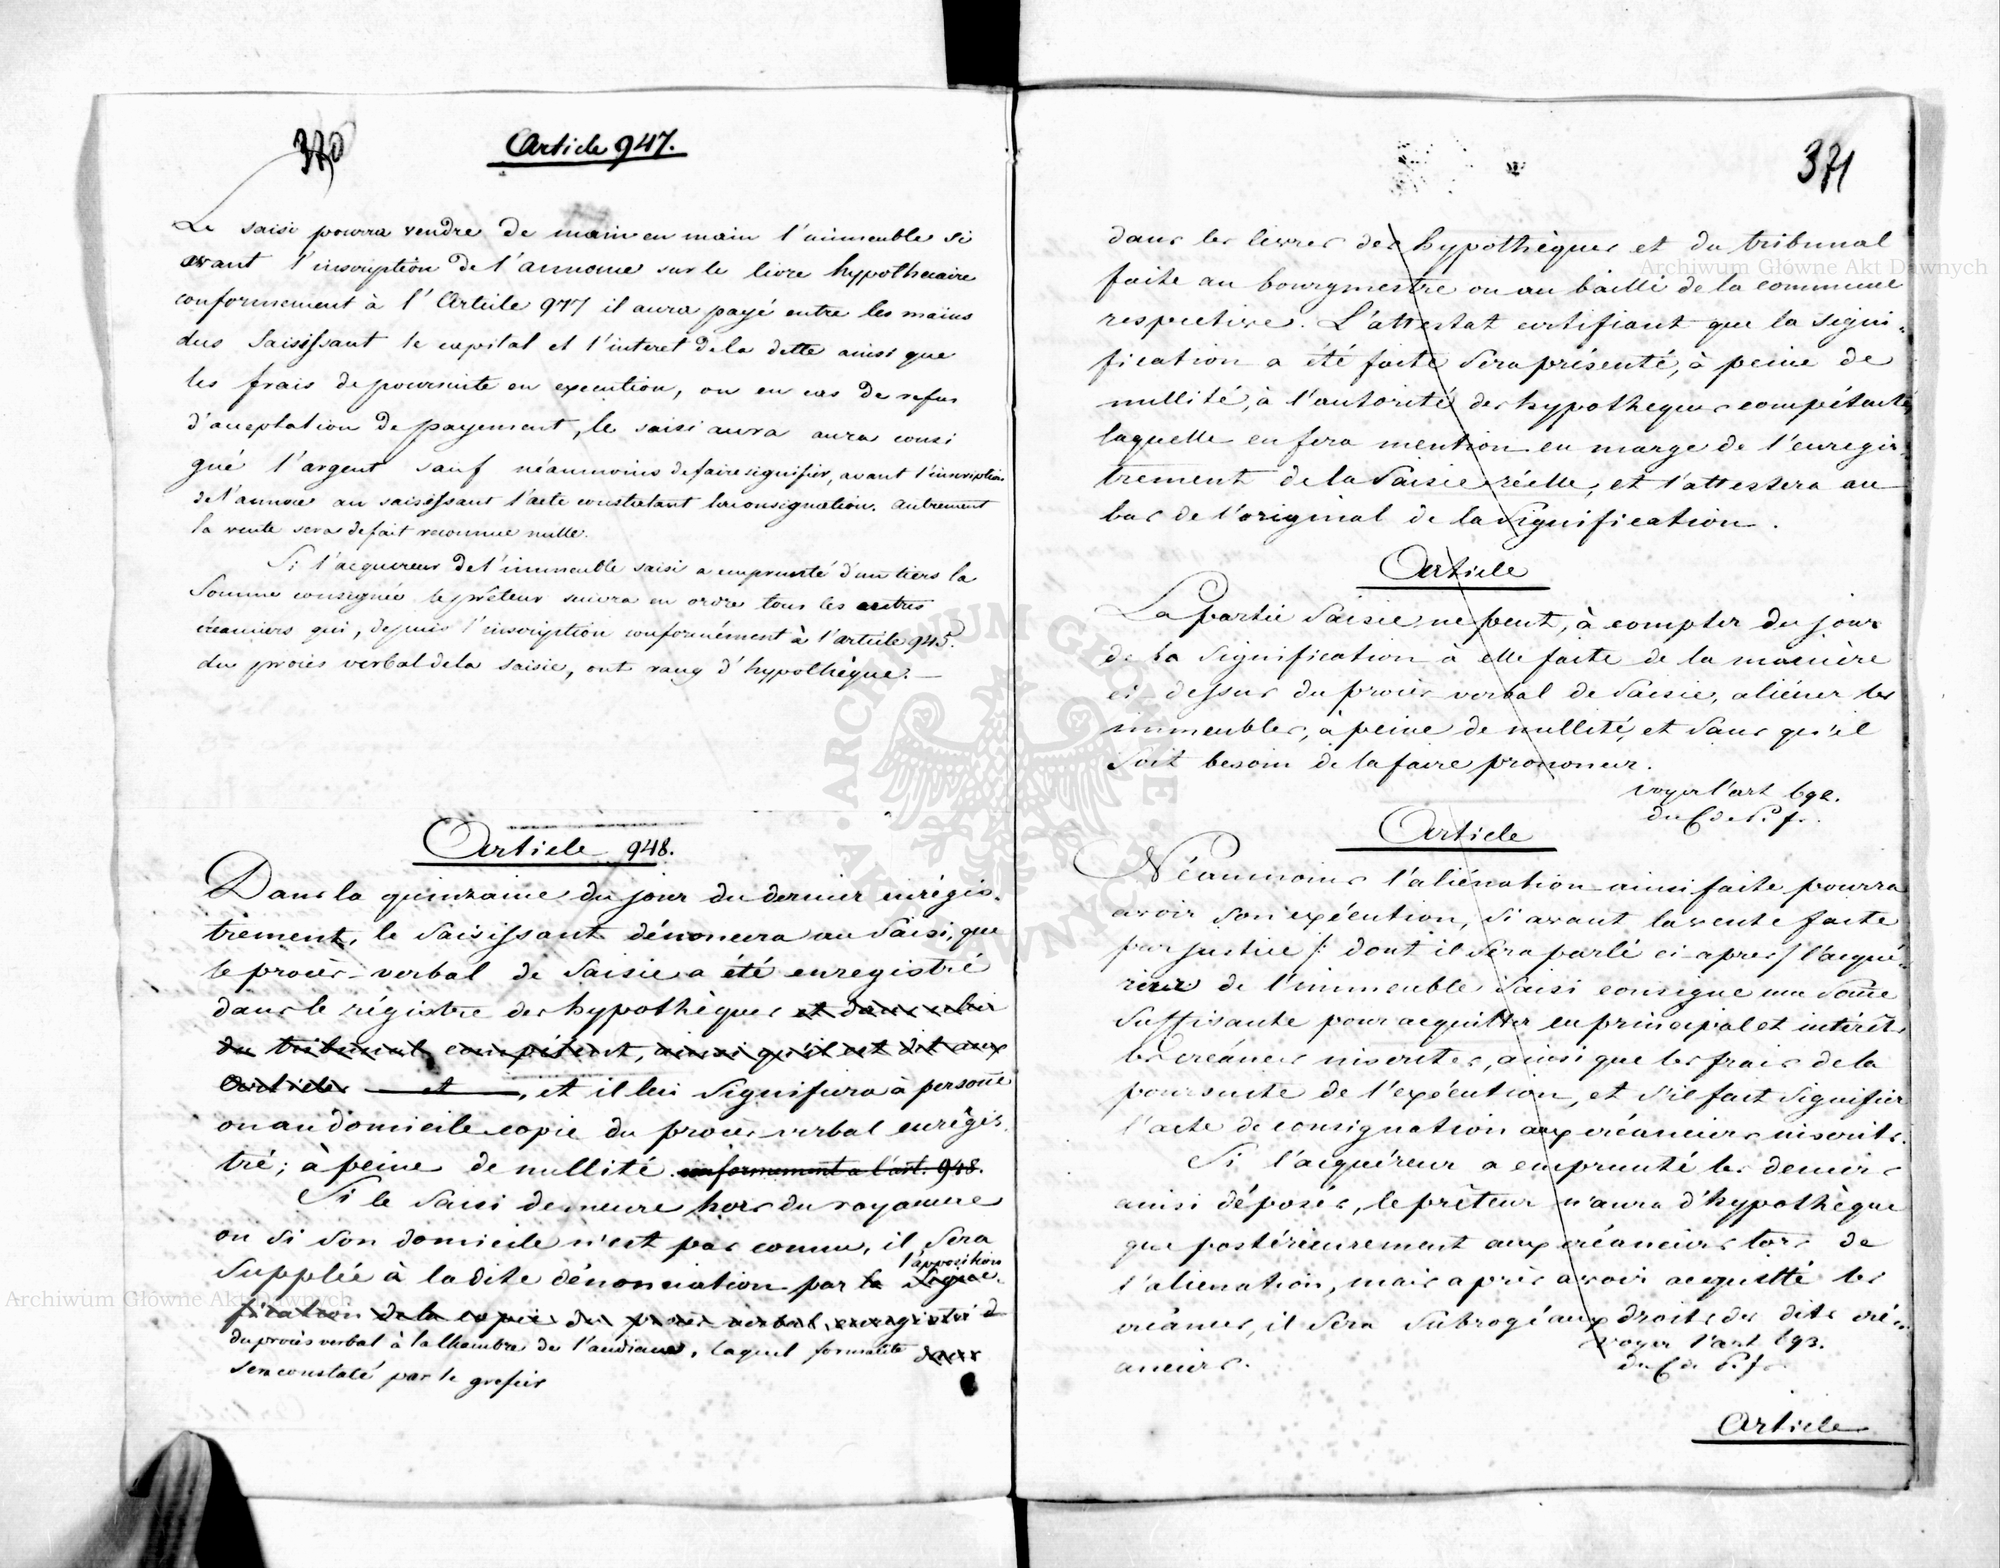 370
Article 947.
Le saisi pourra vendre de main en main l'immeuble si
avant l'inscription de l'annonce sur le livre hypothecaire
conformement à l'Article 977 il aura payé entre les mains
des Saisissant le capital et l'interet de la dette ainsi que
les frais de poursuite en execution, ou en cas de refus
d'acceptation de payement, le saisi aura aura consi
gné l'argent sauf néanmoins de faire signifier, avant l'inscription
de l'annonce au saisissant l'acte constatant la consignation. autrement
la vente sera de fait reconnue nulle.
Si l'acquereur de l'immeuble saisi a emprunté d'un tiers la
Somme consignée le prêteur suivra en ordre tous les autres
créanciers qui, depuis l'inscription conformément à l'article 945.
du procès verbal de la saisie, ont rang d'hypothèque.
Article 948.
Dans la quinzaine du jour du dernier enrégis-
trement, le Saisissant dénoncera au Saisi, que
le procès-verbal de Saisie a été enregistré
dans le régistre des hypothèques et dans celui
du tribunal compétent, ainsi qu'il est dit aux
Articles et , et il lui Signifiera à personne
ou au domicile copie du procès verbal enrégis-
tré; à peine de nullité. conformement a l'art. 948.
Si le Saisi demeure hors du royaume
ou Si Son domicile n'est pas connu, il Sera
l'apposition
Supplée à la dite dénonciation par la Signi-
fication de la copie du procès verbal enregistré
du procès verbal à la chambre de l'audiance, laquel formalité dans
sera constaté par le grefier
371
dans les livres des hypothèques et du tribunal
faite au bourgmestre ou au bailli de la commune
respective. L'attestat certifiant que la Signi-
fication a été faite Sera présenté, à peine de
nullité, à l'autorité des hypotheques compétente,
laquelle en fera mention en marge de l'enregis-
trement de la Saisie réelle, et l'attestera au
bas de l'original de la Signification.
Article
La partie Saisie ne peut, à compter du jour
de la Signification à elle faite de la manière
ci-dessus du procès verbal de Saisie, aliéner les
immeubles, à peine de nullité, et Sans qu'il
Soit besoin de la faire prononcer.
voyez l'art 692.
du C. de P. f.
Article
Néanmoins l'aliénation ainsi faite pourra
avoir Son exécution, Si avant la vente faite
par justice /: dont il Sera parlé ci après / l'acqué-
reur de l'immeuble Saisi consigne une Somme
Suffisante pour acquitter en principal et intérêts
les créances inscrites, ainsi que les frais de la
poursuite de l'exécution, et S'il fait Signifier
l'acte de consignation aux créanciers inscrits.
Si l'acquéreur a emprunté les deniers
ainsi déposés, le prêteur n'aura d'hypothèque
que postérieurement aux créanciers lors de
l'alienation, mais après avoir acquitté les
créances, il Sera Subrogé aux droits des dits cré-
anciers.
voyez l'art 693.
du C. de P. f.
Article